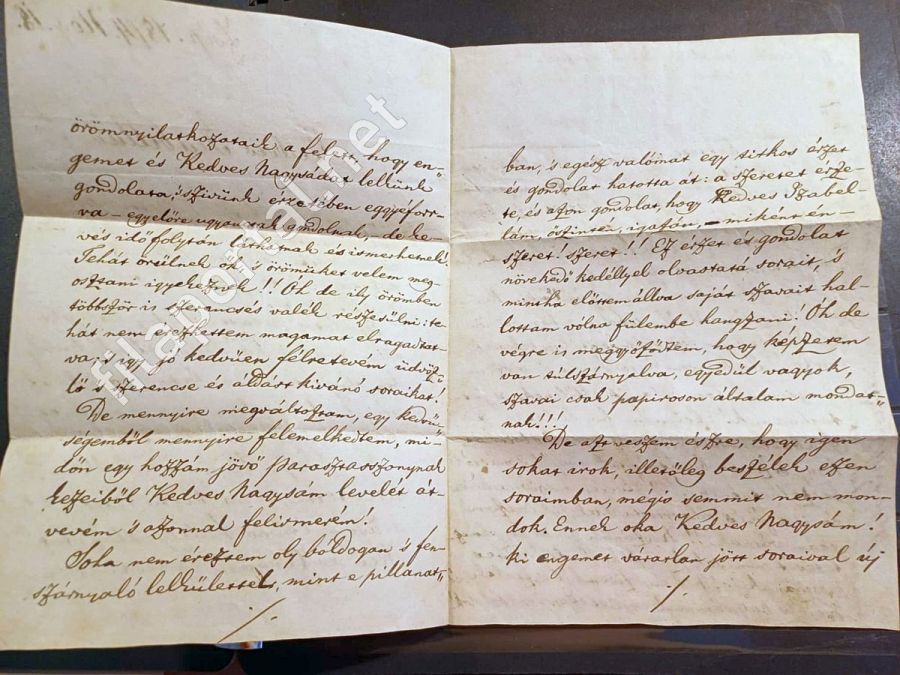 örömnyilatkozataik a felett, hogy en„
gemet és Kedves Nagysádat lelkünk
gondolata, s szivünk érzésiben eggyéfor„
va – egyelőre ugyan csak gondolnak, – de ke„
vés idő folytán láthatnak és ismerhetnek!
Tehát örülnek ők is örömüket velem meg„
osztani igyekeznek!! Oh de ily örömben
többször is szerencsés valék részesülni; te„
hát nem érezhettem magamat elragadtat„
va; s igy jó kedvüen félretevém üdvöz„
lő s szerencse és áldást kivánó soraikat!
De mennyire megváltoztam, egy kedvü„
ségemből mennyire felemelkedtem, mi„
dőn egy hozzám jövő parasztasszonynak
kezeiből Kedves Nagysám levelét át„
vevém s azonnal felismerém!
Soha nem éreztem oly boldogan s fen„
szárnyaló lelkülettel, mint e pillanat„
./.
ban, s egész valómat egy titkos érzet
és gondolat hatotta át: a szeretet érze„
te, és azon gondolat, hogy Kedves Izabel„
lám, őszintén, igazán, – miként én –
szeret! szeret!! Ez érzet és gondolat
növekedő kedéllyel olvastatá sorait, s
mintha előttem állva saját szavait hal„
lottam vólna fülembe hangzani! Oh de
végre is meggyőződtem, hogy képzetem
van túlszárnyalva, egyedül vagyok,
szavai csak papiroson általam mondat„
nak!!!
De azt veszem észre, hogy igen
sokat irok, illetőleg beszélek ezen
soraimban, mégis semmit nem mon„
dok. Ennek oka Kedves Nagysám!
ki engemet váratlan jött soraival új
./.
filaportal.net